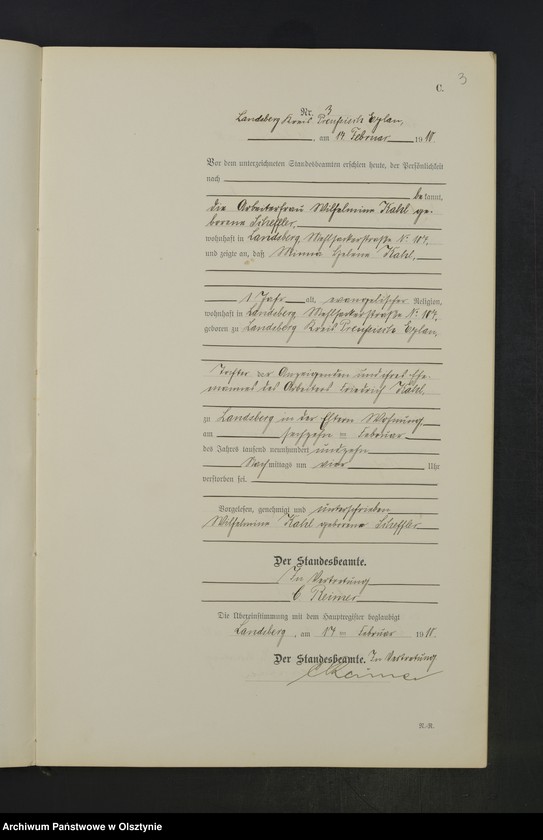 3
C.
Nr. 3
Landsberg Kreis Preußisch Eylau,
, am 17 Februar 1910
Vor dem unterzeichneten Standesbeamten erschien heute, der Persönlichkeit
nach
bekannt,
die Arbeiterfrau Wilhelmine Kahl ge-
borene Scheffler,
wohnhaft in Landsberg, Mehlsackerstraße No 184,
und zeigte an, daß Minna Helene Kahl,
1 Jahr alt, evangelischer Religion,
wohnhaft in Landsberg Mehlsackerstraße No 184,
geboren zu Landsberg Kreis Preußisch Eylau,
Tochter der Anzeigenden und ihres Ehe-
mannes des Arbeiters Friedrich Kahl,
zu Landsberg in der Eltern Wohnung
am sechzehn ten Februar
des Jahres tausend neunhundert und zehn
Nachmittags um vier Uhr
verstorben sei.
Vorgelesen, genehmigt und unterschrieben
Wilhelmine Kahl geborene Scheffler
Der Standesbeamte.
In Vertretung
C Reimer
Die Übereinstimmung mit dem Hauptregister beglaubigt
Landsberg, am 17 ten Februar 1910.
Der Standesbeamte. In Vertretung
C Reimer
Archiwum Państwowe w Olsztynie